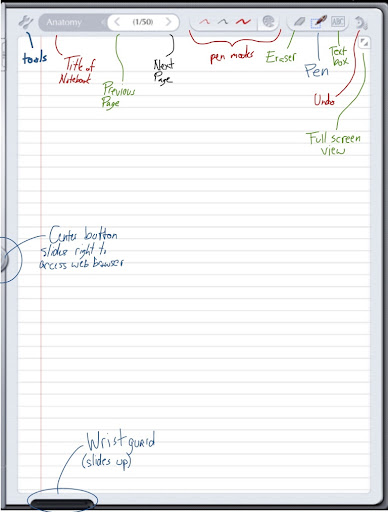 Anatomy
(1/50)
ABC
tools
Title of
Notebook
Previous
Page
Next
Page
pen modes
Eraser
Pen
Text
box
Undo
Full screen
view
Center button
slides right to
access web browser
Wrist guard
(slides up)